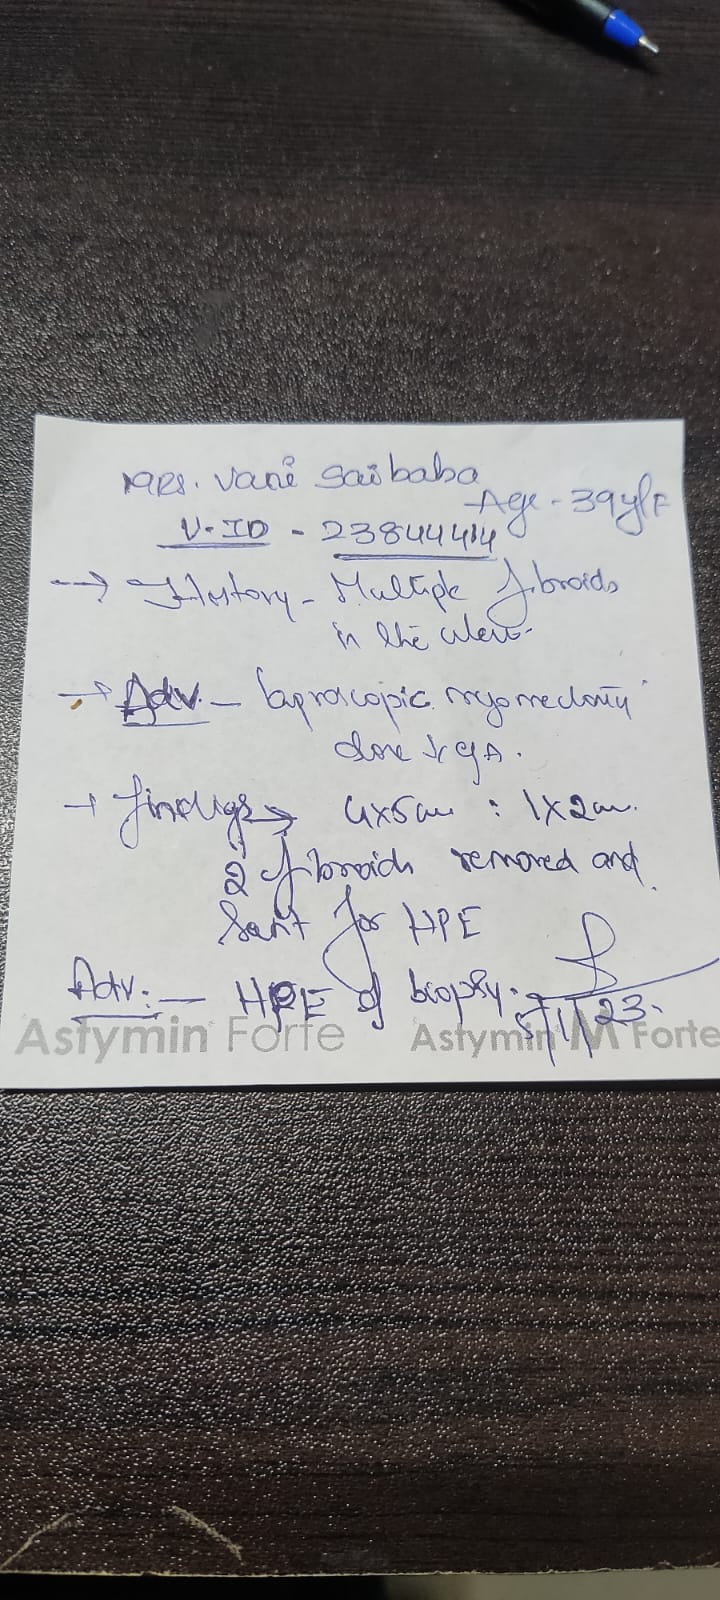 Mrs. Vani Saibaba
Age - 39y/F
V-ID - 23844414
→ History - Multiple fibroids
in the uterus.
→ Adv. - laproscopic myomectomy
done GA.
→ findings → 4x5cm : 1x2cm.
2 fibroids removed and
sent for HPE
Adv: - HPE of biopsy.
/1/23.
Astymin Forte Astymin M Forte